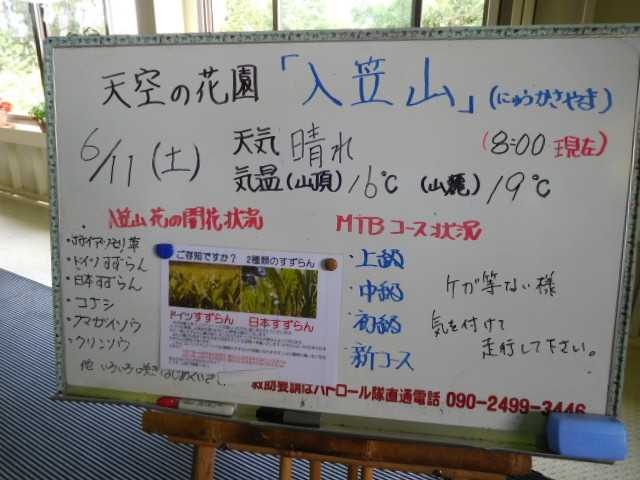 天空の花園「入笠山」(にゅうかさやま)
6/11(土) 天気 晴れ (8:00現在)
気温(山頂)16℃ (山麓)19℃
入笠山 花の開花状況
・ドイツすずらん
・日本すずらん
・コナシ
・クマガイソウ
・クリンソウ
他 いろいろ咲きはじめ
ご存知ですか? 2種類のすずらん
ドイツすずらん 日本すずらん
MTBコース状況
・上級
・中級
・初級
・新コース
ケガ等ない様
気を付けて
走行して下さい。
救助要請はパトロール隊直通電話 090-2499-3446